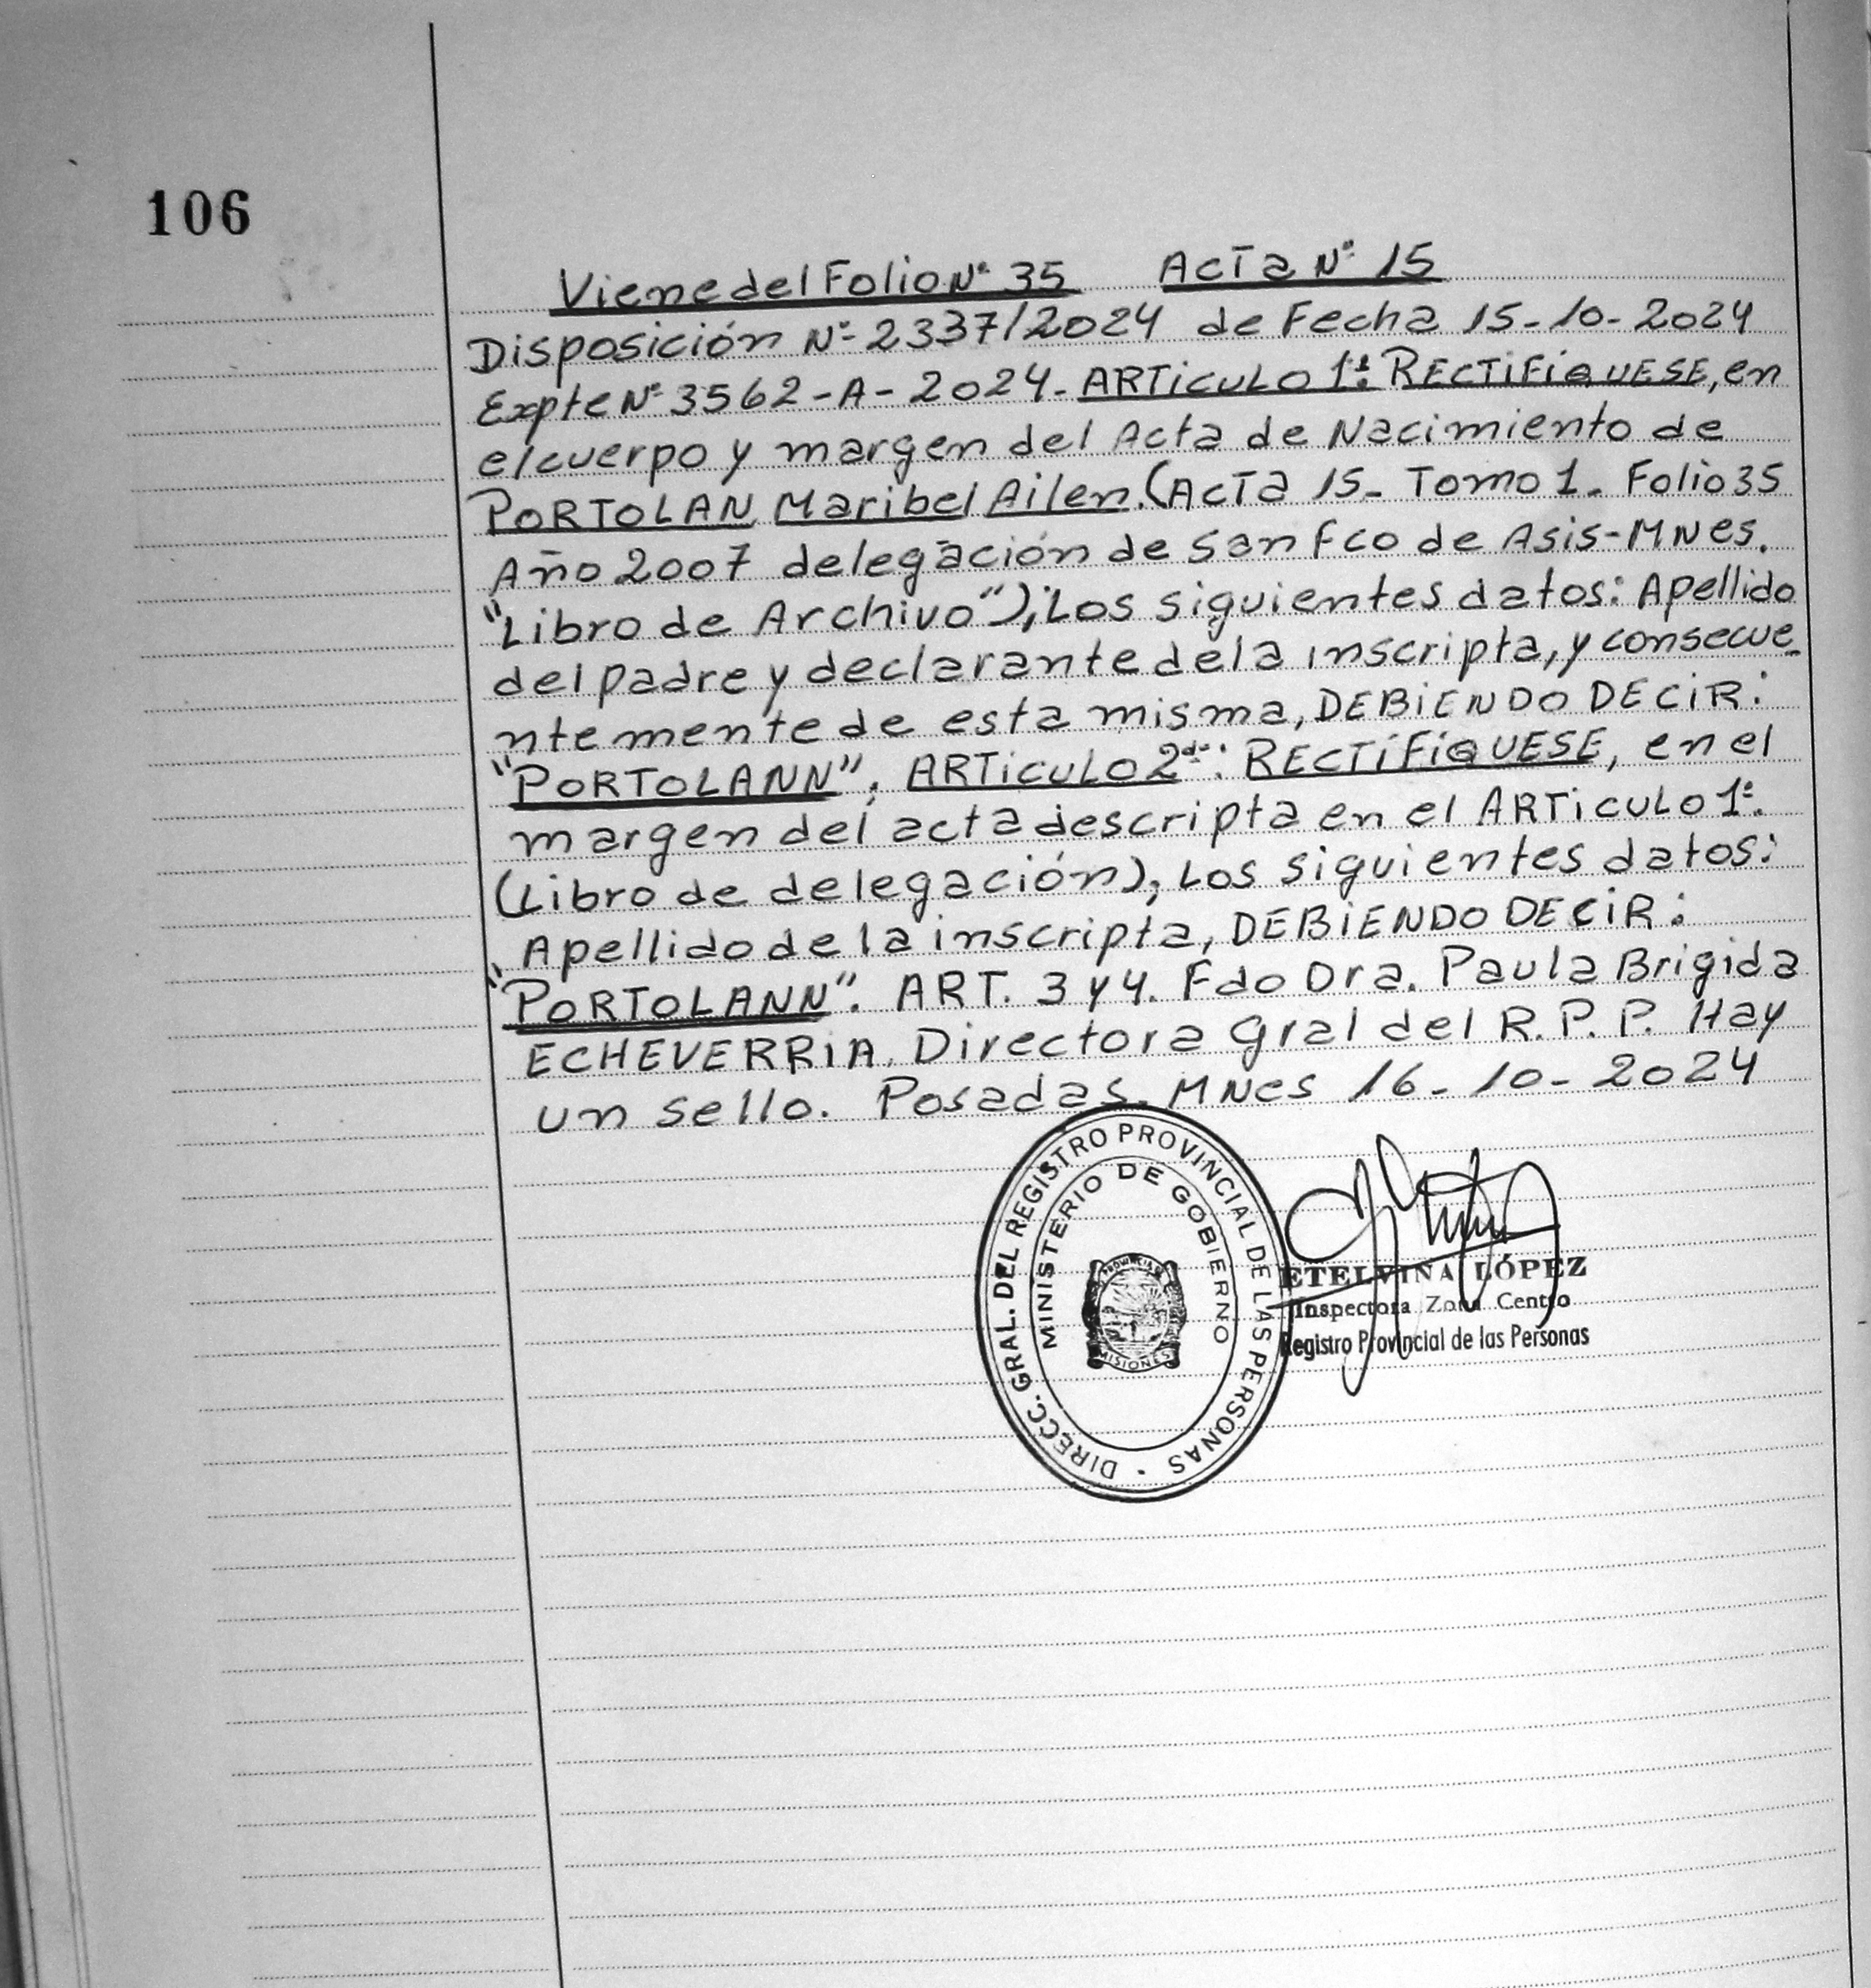 106
Viene del Folio Nº 35 Acta Nº 15
Disposición Nº 2337/2024 de Fecha 15-10-2024
Expte Nº 3562-A-2024- ARTiCULO 1º: RECTiFiQUESE, en
el cuerpo y margen del Acta de Nacimiento de
PORTOLAN Maribel Ailen. (Acta 15- Tomo 1- Folio 35
Año 2007 delegación de San Fco de Asis-MNes.
"Libro de Archivo"); Los siguientes datos: Apellido
del padre y declarante de la inscripta, y consecue-
ntemente de esta misma, DEBiENDO DECiR:
"PORTOLANN". ARTiCULO 2do: RECTiFiQUESE, en el
margen del acta descripta en el ARTiCULO 1º.
(Libro de delegación), Los siguientes datos:
Apellido de la inscripta, DEBiENDO DECiR:
"PORTOLANN". ART. 3 y 4. Fdo Dra. Paula Brigida
ECHEVERRIA. Directora Gral del R.P.P. Hay
un sello. Posadas. MNes 16-10-2024
DIRECC. GRAL. DEL REGISTRO PROVINCIAL DE LAS PERSONAS
MINISTERIO DE GOBIERNO
PROVINCIA
MISIONES
ETELVINA LÓPEZ
Inspectora Zona Centro
Registro Provincial de las Personas